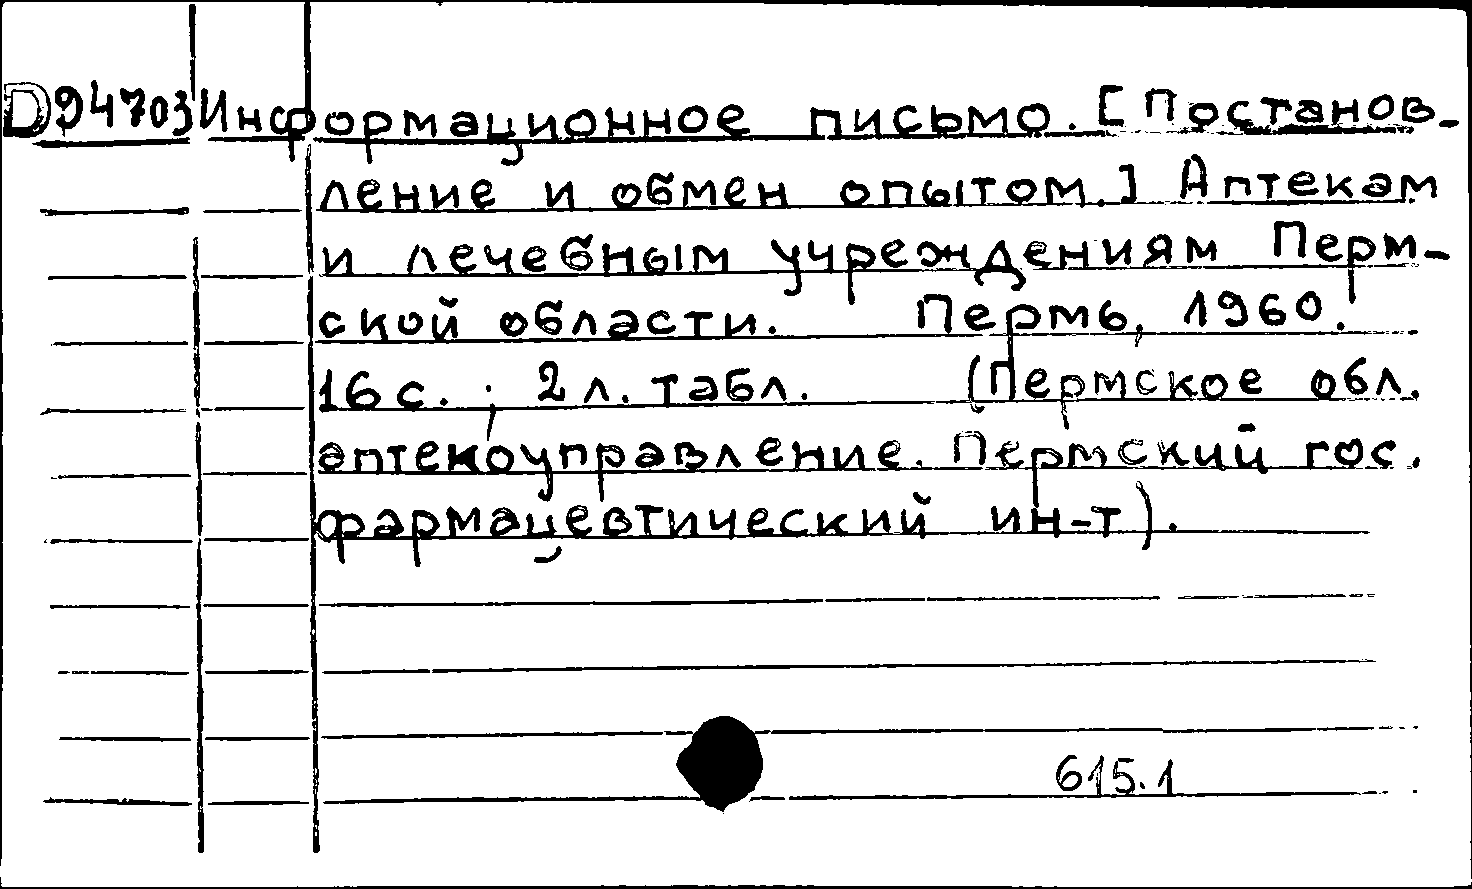 D94703 Информационное письмо. [Постанов-
ление и обмен опытом.] Аптекам
и лечебным учреждениям Перм-
ской области. Пермь, 1960.
16 с.; 2 л. табл. (Пермское обл.
аптекоуправление. Пермский гос.
фармацевтический ин-т).
615.1